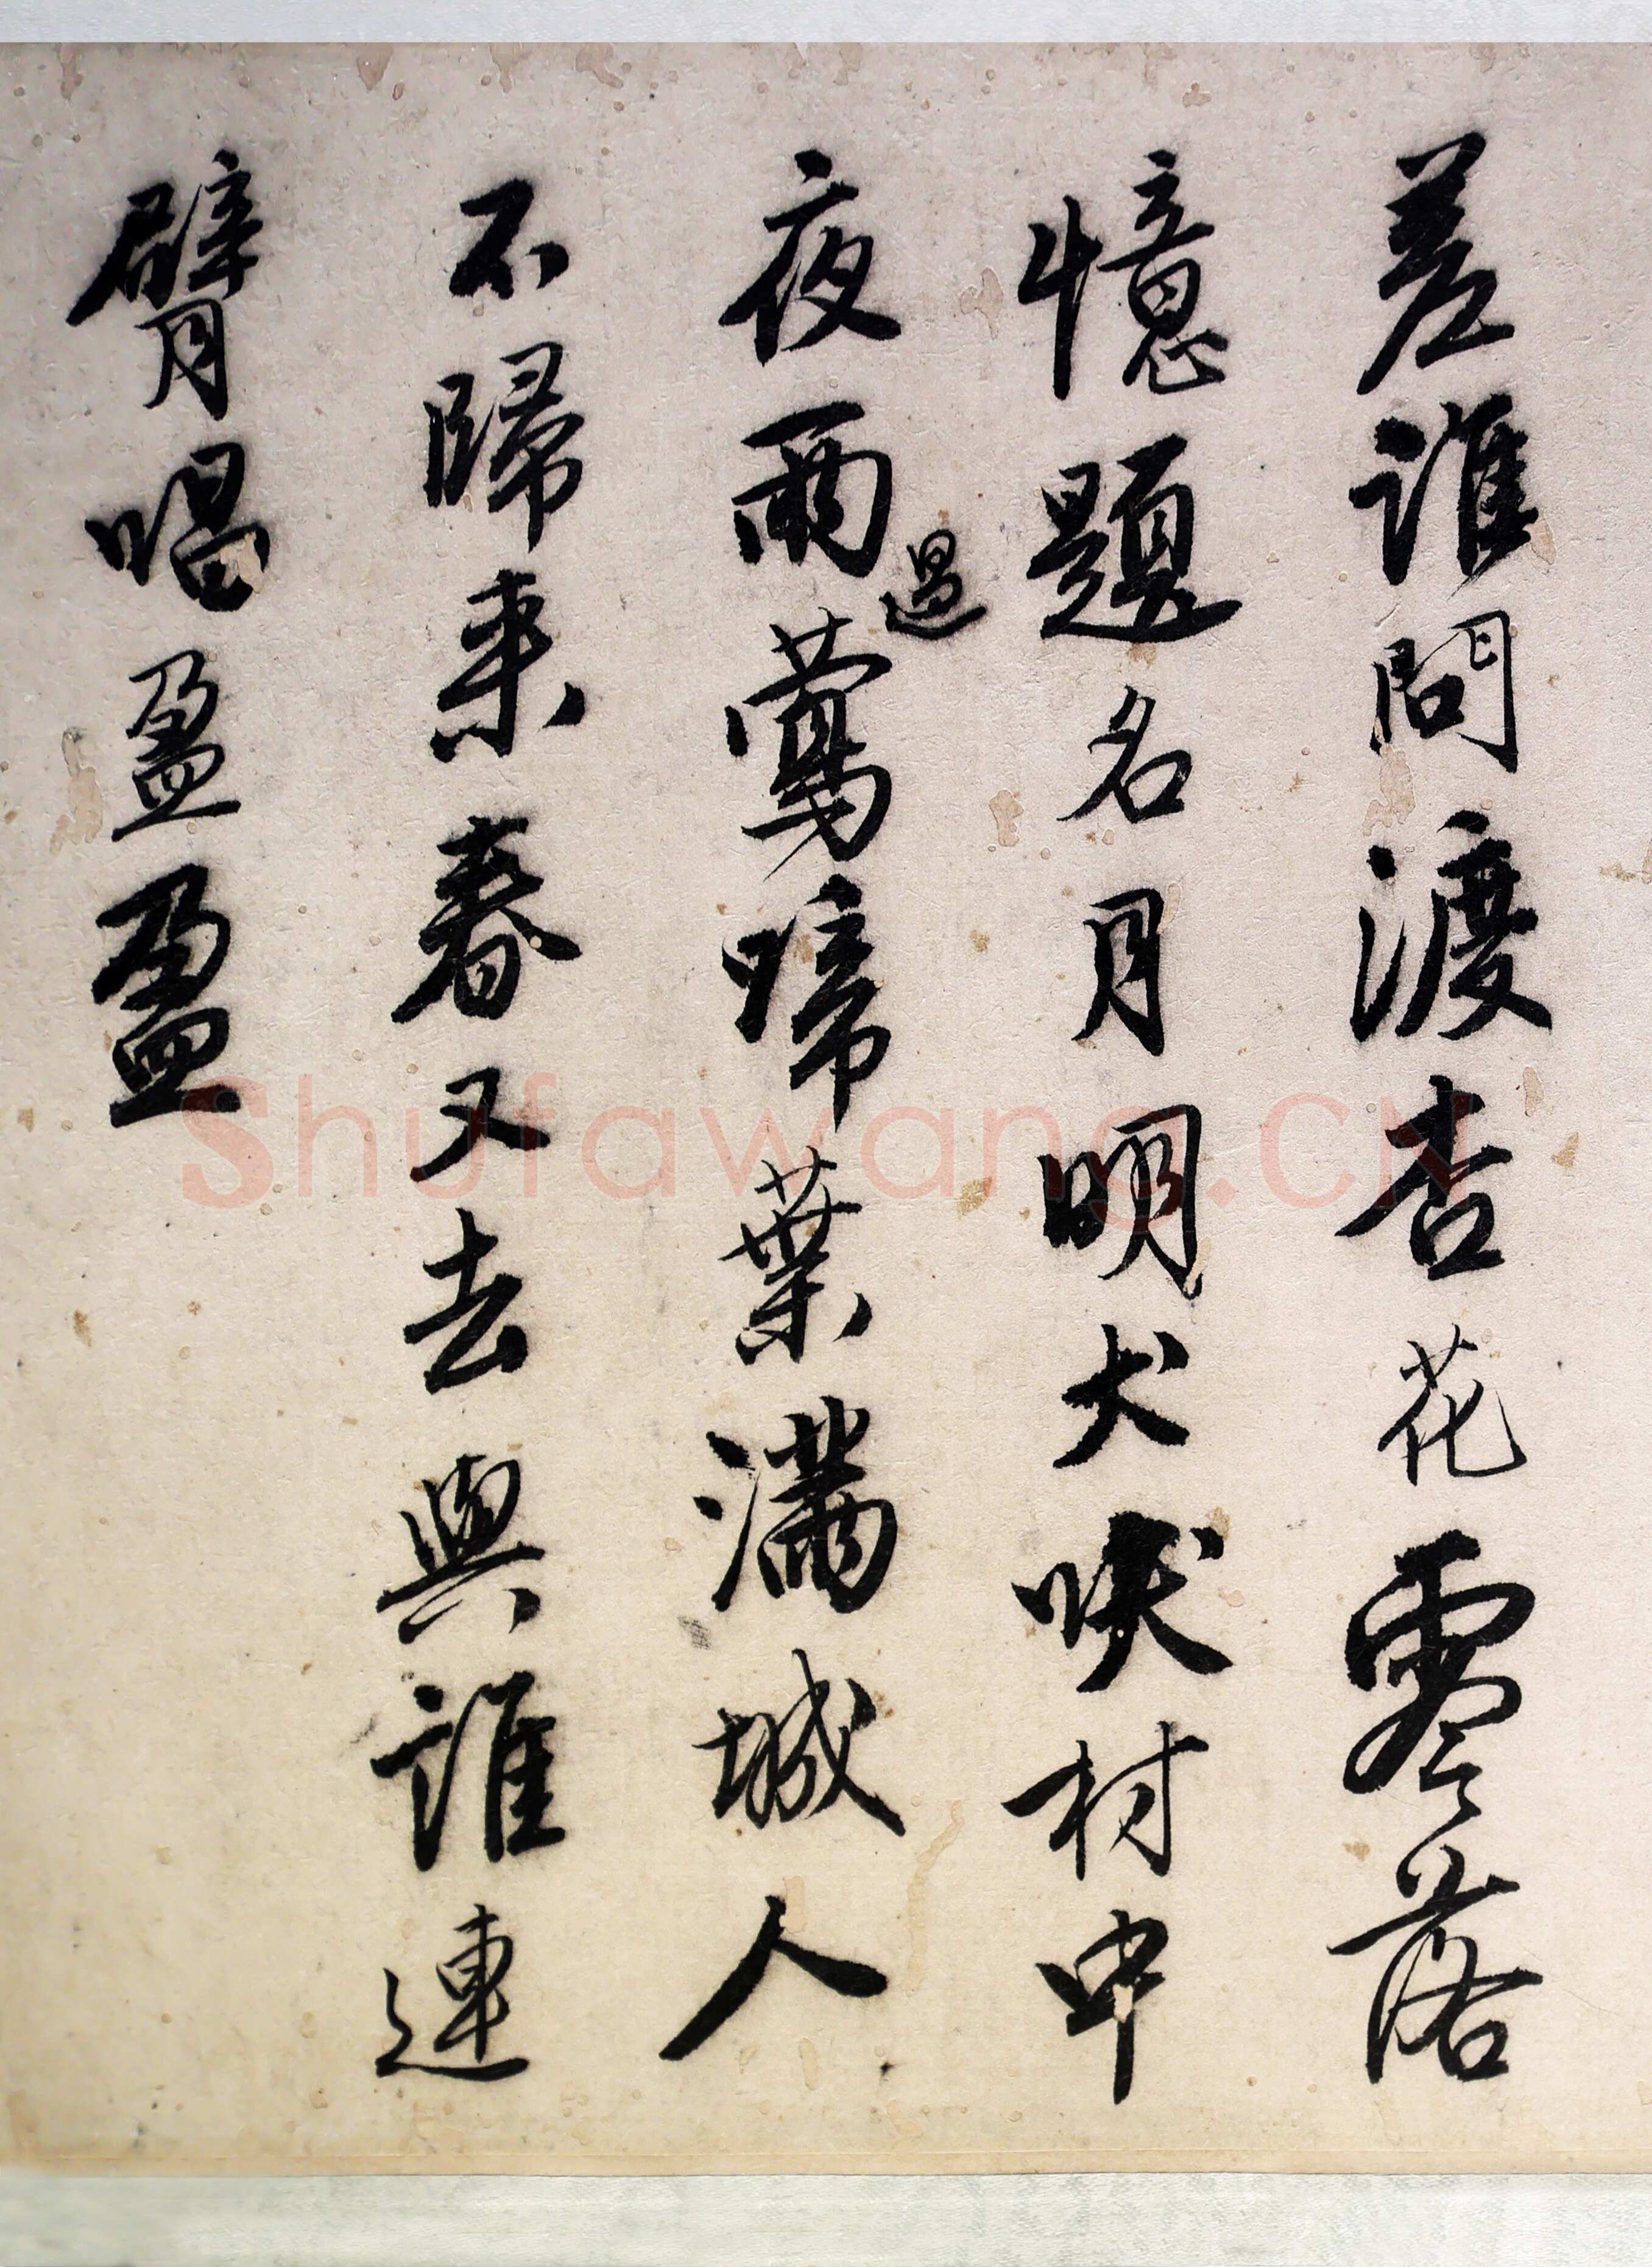 差誰問渡杏花零落
憶題名月明犬吠村中
夜雨過鶯啼葉滿城人
不歸来春又去與誰連
臂唱盈盈
Shufawang.CN